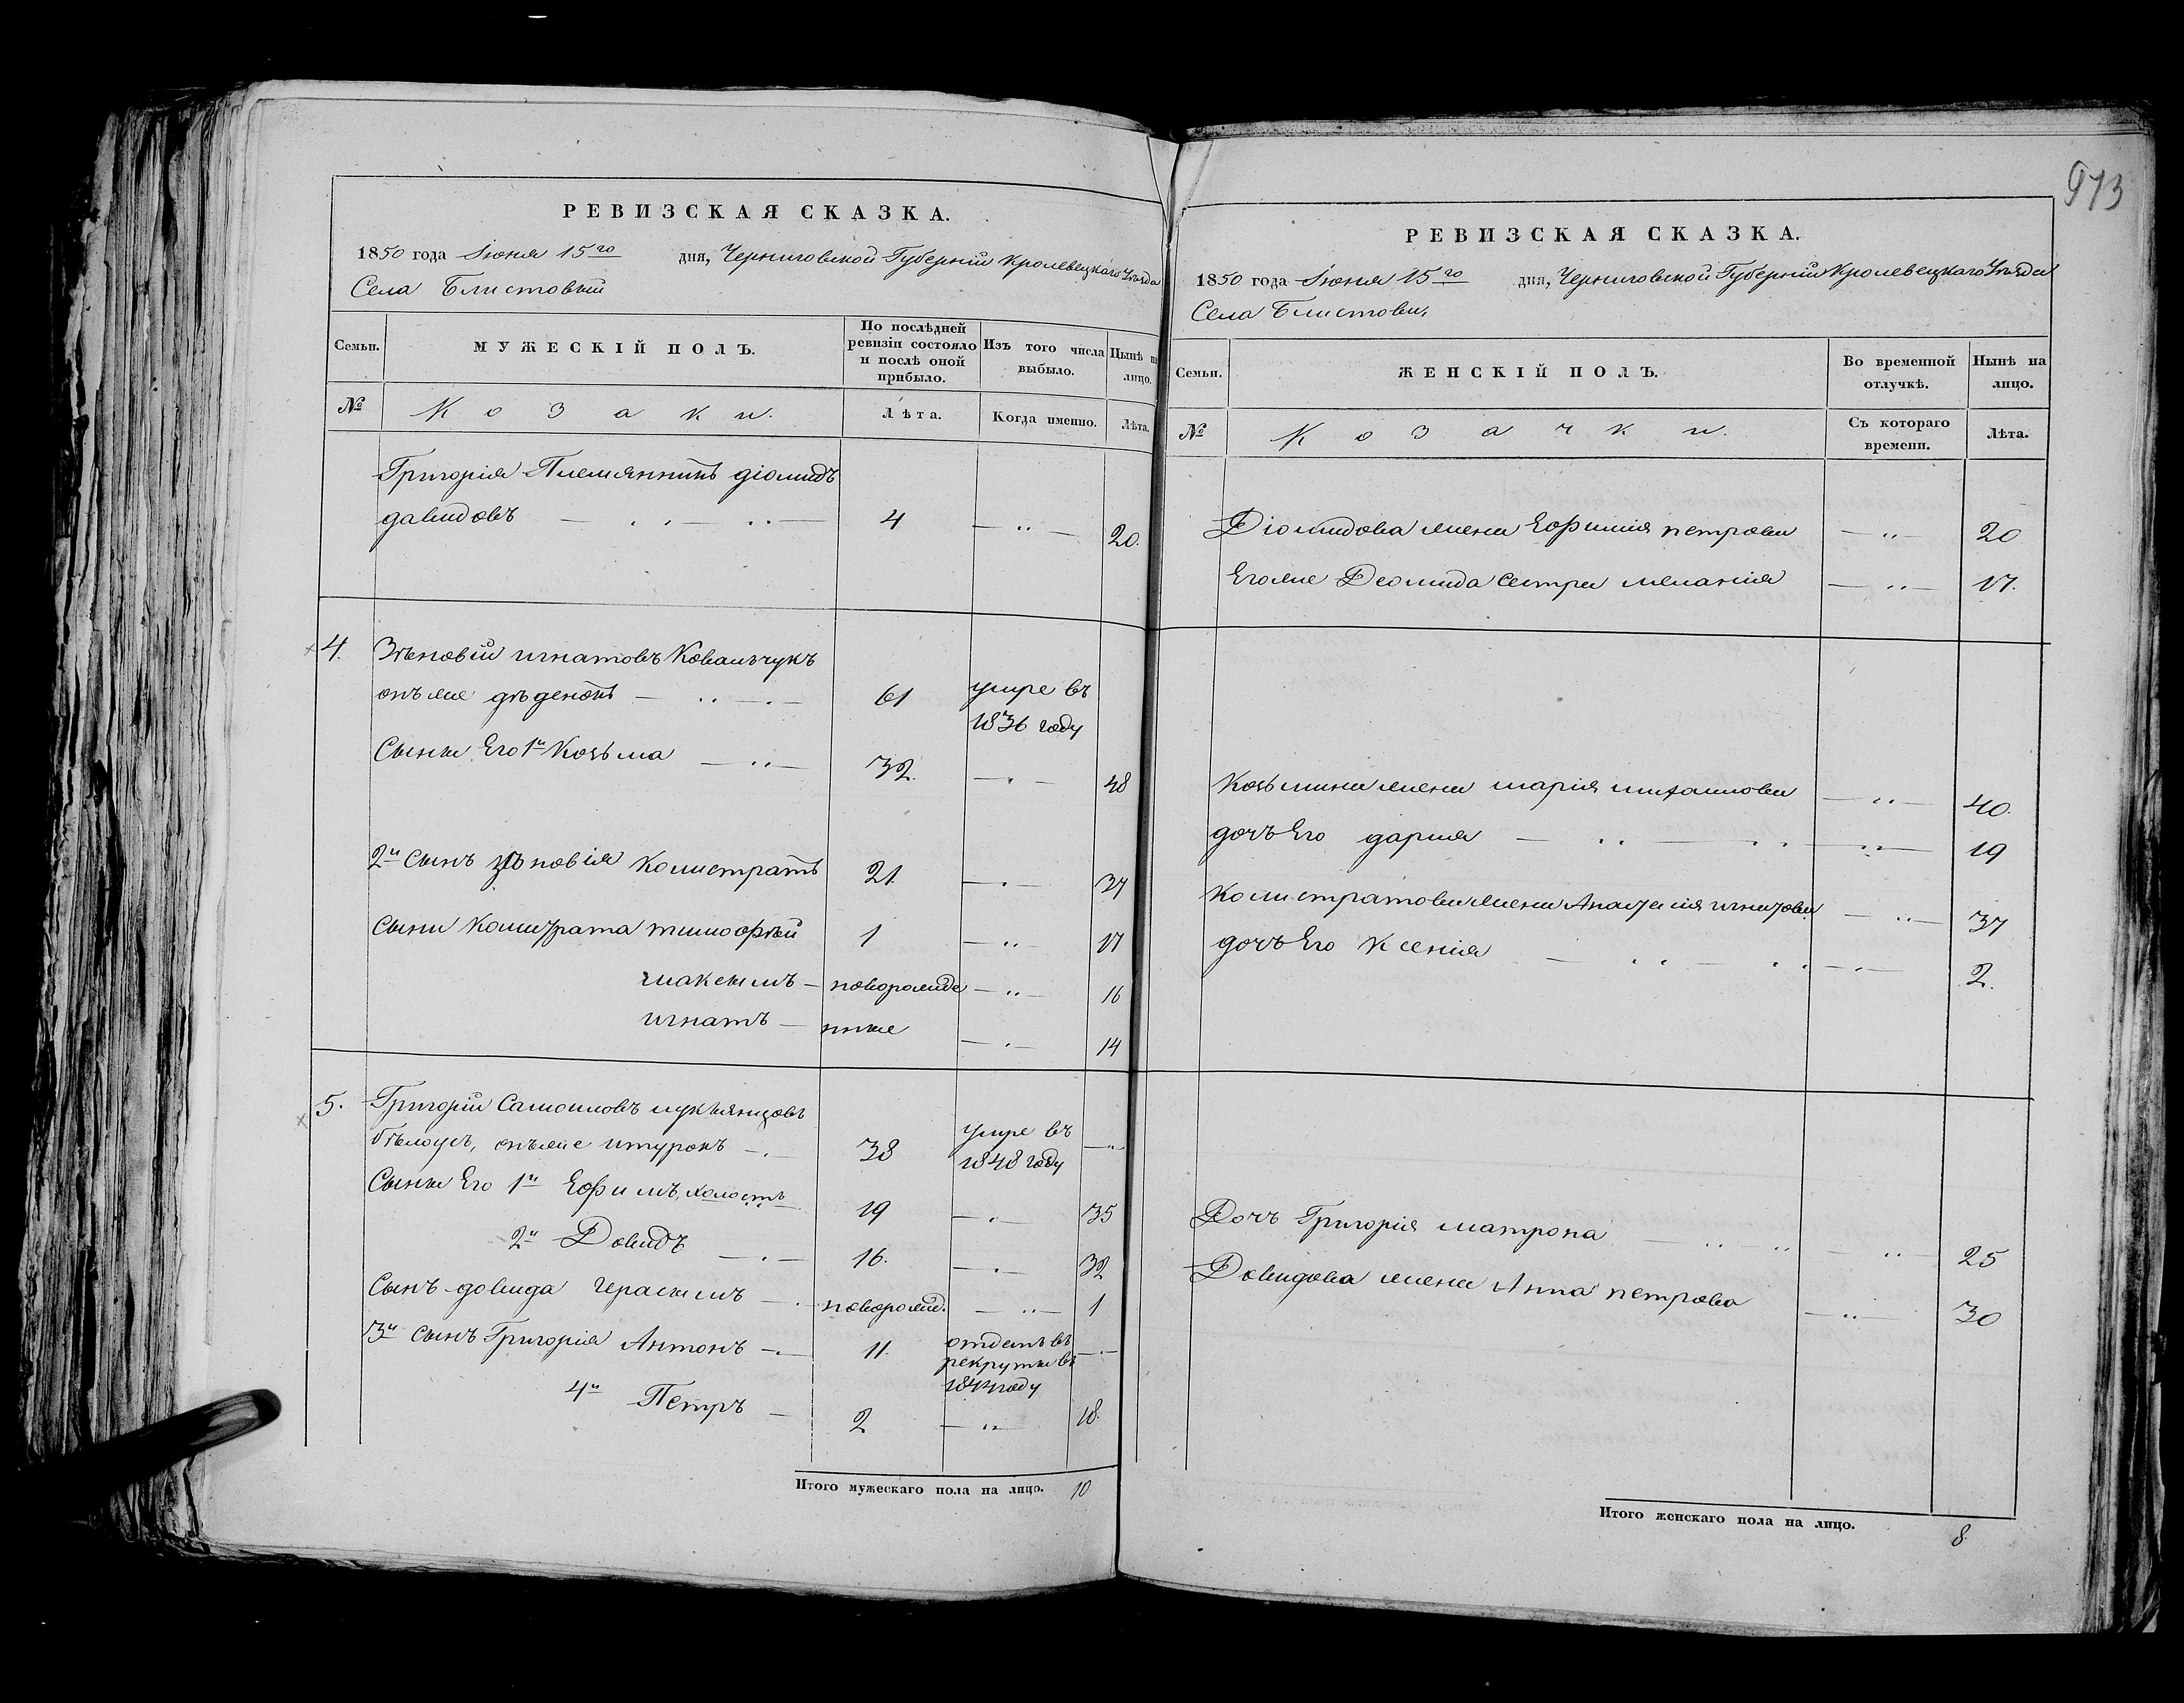 973
РЕВИЗСКАЯ СКАЗКА.
1850 года Іюня 15го дня, Черниговской Губерніи Кролевецкаго Уѣзда
Села Блистовый
Семьи.
МУЖЕСКІЙ ПОЛЪ.
По послѣдней ревизіи состояло и послѣ оной прибыло.
Изъ того числа выбыло.
Нынѣ на лицо.
№
Козаки.
Лѣта.
Когда именно.
Лѣта.
Григорія Племянникъ діомидъ
давидовъ — 4 — 20.
4. Зѣновій игнатовъ Ковальчукъ
онъ же дѣденокъ — 61 умре въ
1836 году
Сыны Его 1й Козьма — 32. — 48
2й Сынъ зѣновія Колистратъ 21. — 37
Сыны Колистрата тимофѣй 1 — 17
максимъ — новорожде — 16
игнатъ — нные — 14
5. Григорій Самоиловъ лукьянцовъ
бѣлоусъ, онъже итурокъ — 38 умре въ —
1848 году
Сыны Его 1й Ефимъ, холостъ 19 — 35
2й Довидъ — 16. — 32
Сынъ довида герасимъ — новорожд. — 1
3й сынъ Григорія Антонъ — 11. отданъ въ —
рекруты въ
1844 году
4й Петръ — 2 — 18.
Итого мужескаго пола на лицо. 10
РЕВИЗСКАЯ СКАЗКА.
1850 года Іюня 15го дня, Черниговской Губерніи Кролевецкаго Уѣзда
Села Блистовы,
Семьи.
ЖЕНСКІЙ ПОЛЪ.
Во временной отлучкѣ.
Нынѣ на лицо.
№
Козачки.
Съ котораго времени.
Лѣта.
Діомидова жена Ефимія петрова — 20
Егоже Деомида Сестра меланія — 17.
Козьмина жена марія михаилова — 40.
дочъ Его дария — 19
Колистратова жена Анастасія игнатова — 37
дочъ Его Ксенія — 2.
Дочъ Григорія матрона — 25
Довидова жена Анна петрова — 30
Итого женскаго пола на лицо. 8.